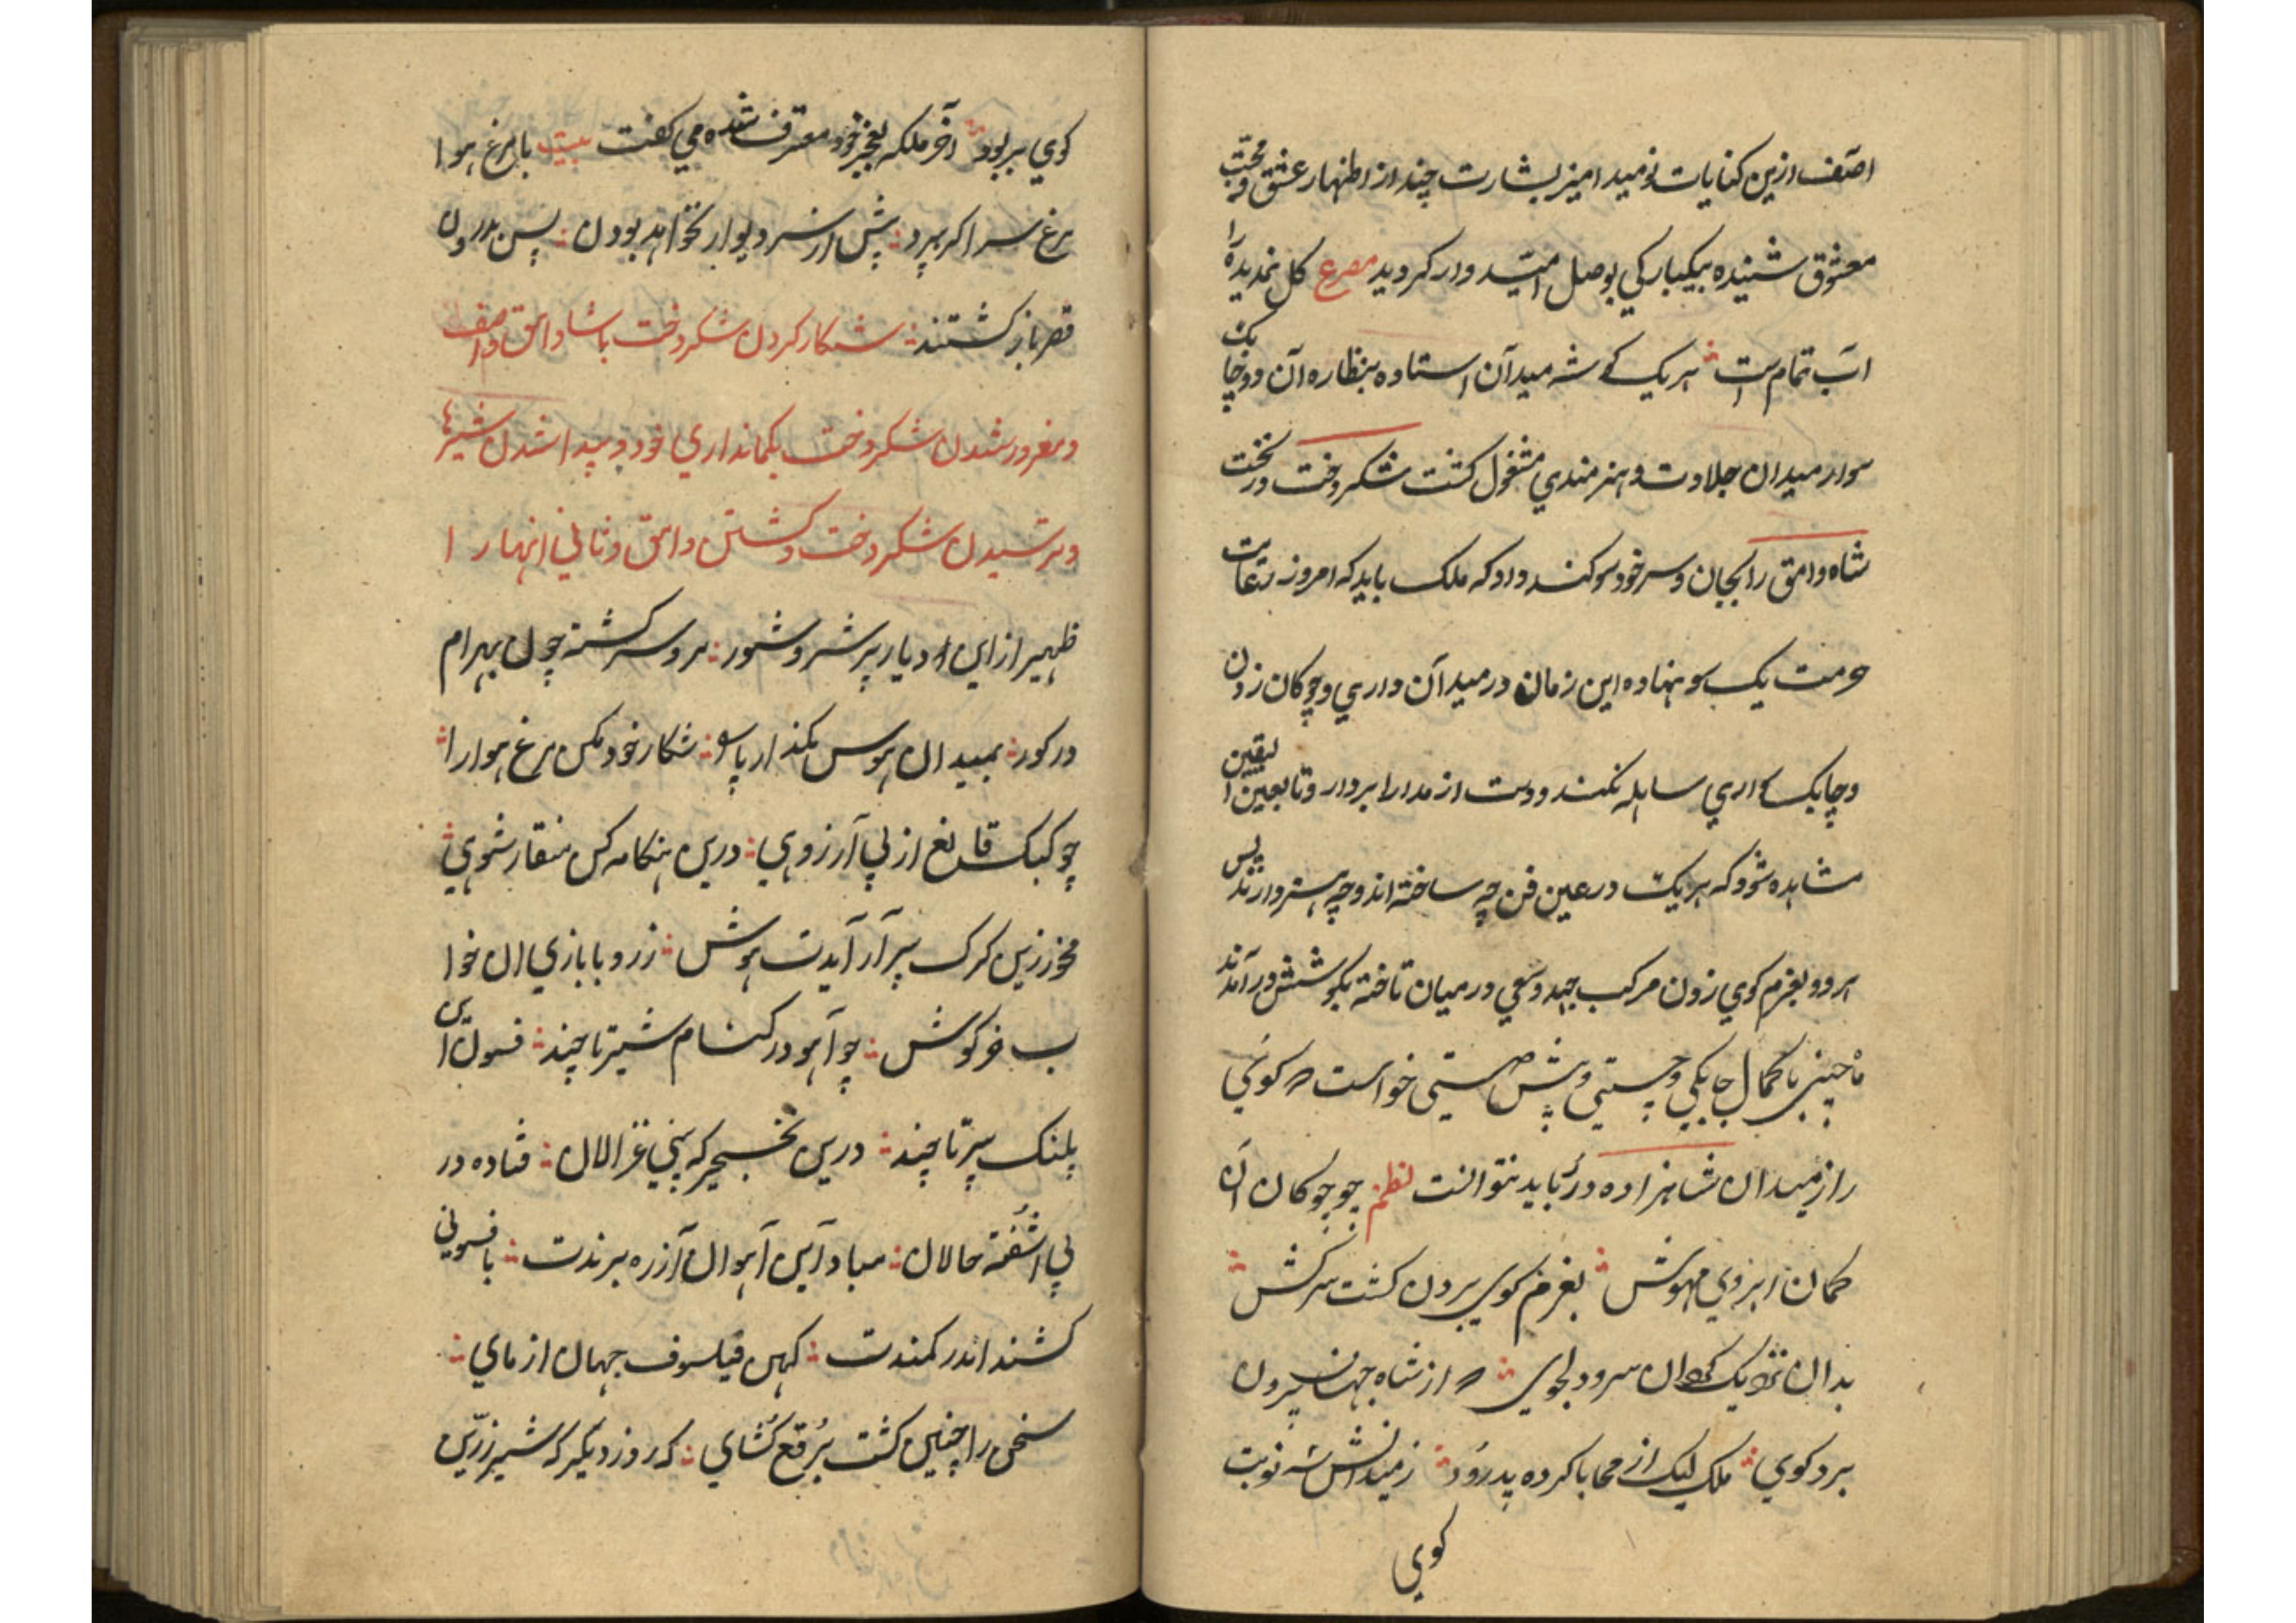 آصف ازین کنایات نومید امیز بشارت چند از اظهار عشق و محبّت
معشوق شنیده بیکبارکی بوصل امیّد وار کردید مصرع کل نمدیده را
آب تمام است هریک کوشه میدآن استاده بنظاره آن دو چابک
سوار میدان جلادت و هنرمندي مشغول کشت شکردخت در تخت
شاه وامق را بجان و سر خود سوکند داد که ملک باید که امروز رعایت
حرمت یکسو نهاده این زمان در میدآن داري و چوکان زدن
و چابکسواري ساہلہ نکند و دست از مدارا بردار و تا بعین الیقین
مشاهده شود که هریک در عین فن چه ساخته اند و چه هنر دارند پس
هر دو بغزم کوي زدن مرکب جهد و سعي در میان تاخته بکوشش در آمدند
ماه چین با کمال چابکي و چستي و پش دستي خواست که کوئي
را از میدان شاهزاده در رباید نتوانست نظم چو چوکان آن
کمان ابروي مهوش بغرم کوي بردن کشت سرکش
بدان نزدیک کان سرو دلجوي که از شاه جهان بیرون
برد کوي ملک لیک از محابا کرده پدرود ز میدانش شه نوبت
کوي
کوي بربود آخر ملکه بعجز خود معترف شده می کفت بیت با مرغ هوا
مرغ سرا کر بپرد پش از سر دیوار نخواهد بودن پس بدرون
قصر باز کشتند شکار کردن شکردخت با شاه وامق و آصف
و مغرور شدن شکردخت بکمانداري خود و پیدا شدن شیرها
و ترسیدن شکردخت و کشتن وامق و ثاني انهارا
ظهیر از این دیار پر شر و شور مرو سرکشته چون بهرام
در کور بمیدان هوس مکذار پا را شکار خود مکن مرغ هوا را
چو کبک قانع از پي آرزوي درین هنکامه کس منقار شوي
مخور زین کرک پیر آر آیدت هوش ز روبا بازي ان خوا
ب خرکوش چو آهو در کنام شیر تا چند فسون این
پلنک پیر تا چند درین نخجیر که بیني غزالان فتاده در
پي اشفته حالان مبادا این آهوان آز ره برندت بافسوني
کشند اندر کمندت کهن فیلسوف جهان از ماي
سخن را چنین کشت برقع کشاي که روز دیکر که شیر زرّین